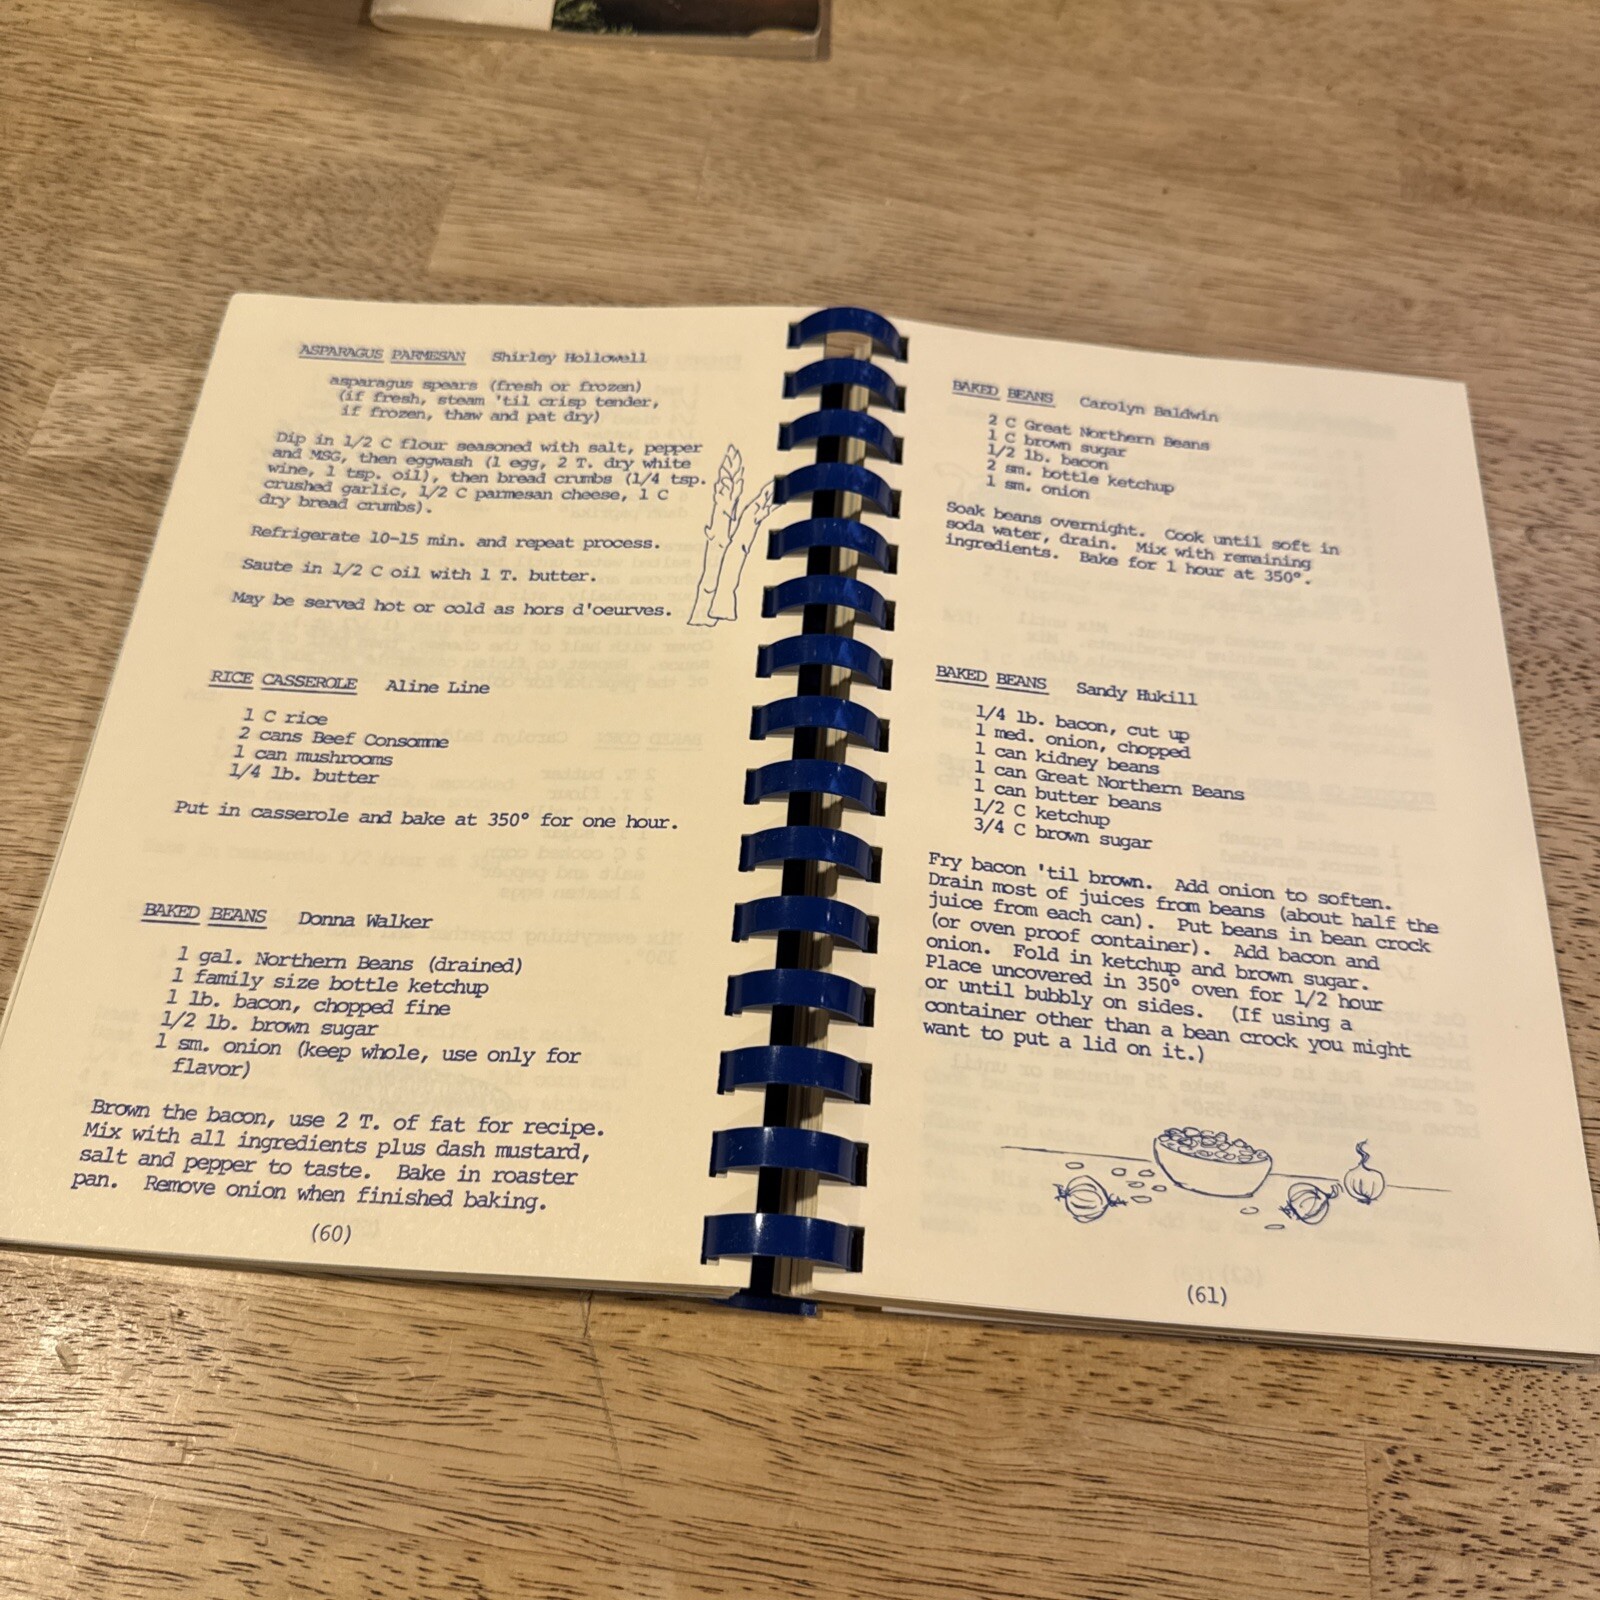 ASPARAGUS PARMESAN Shirley Hollowell
asparagus spears (fresh or frozen)
(if fresh, steam 'til crisp tender,
if frozen, thaw and pat dry)
Dip in 1/2 C flour seasoned with salt, pepper
and MSG, then eggwash (1 egg, 2 T. dry white
wine, 1 tsp. oil), then bread crumbs (1/4 tsp.
crushed garlic, 1/2 C parmesan cheese, 1 C
dry bread crumbs).
Refrigerate 10-15 min. and repeat process.
Saute in 1/2 C oil with 1 T. butter.
May be served hot or cold as hors d'oeurves.
RICE CASSEROLE Aline Line
1 C rice
2 cans Beef Consomme
1 can mushrooms
1/4 lb. butter
Put in casserole and bake at 350° for one hour.
BAKED BEANS Donna Walker
1 gal. Northern Beans (drained)
1 family size bottle ketchup
1 lb. bacon, chopped fine
1/2 lb. brown sugar
1 sm. onion (keep whole, use only for
flavor)
Brown the bacon, use 2 T. of fat for recipe.
Mix with all ingredients plus dash mustard,
salt and pepper to taste. Bake in roaster
pan. Remove onion when finished baking.
(60)
BAKED BEANS Carolyn Baldwin
2 C Great Northern Beans
1 C brown sugar
1/2 lb. bacon
2 sm. bottle ketchup
1 sm. onion
Soak beans overnight. Cook until soft in
soda water, drain. Mix with remaining
ingredients. Bake for 1 hour at 350°.
BAKED BEANS Sandy Hukill
1/4 lb. bacon, cut up
1 med. onion, chopped
1 can kidney beans
1 can Great Northern Beans
1 can butter beans
1/2 C ketchup
3/4 C brown sugar
Fry bacon 'til brown. Add onion to soften.
Drain most of juices from beans (about half the
juice from each can). Put beans in bean crock
(or oven proof container). Add bacon and
onion. Fold in ketchup and brown sugar.
Place uncovered in 350° oven for 1/2 hour
or until bubbly on sides. (If using a
container other than a bean crock you might
want to put a lid on it.)
(61)